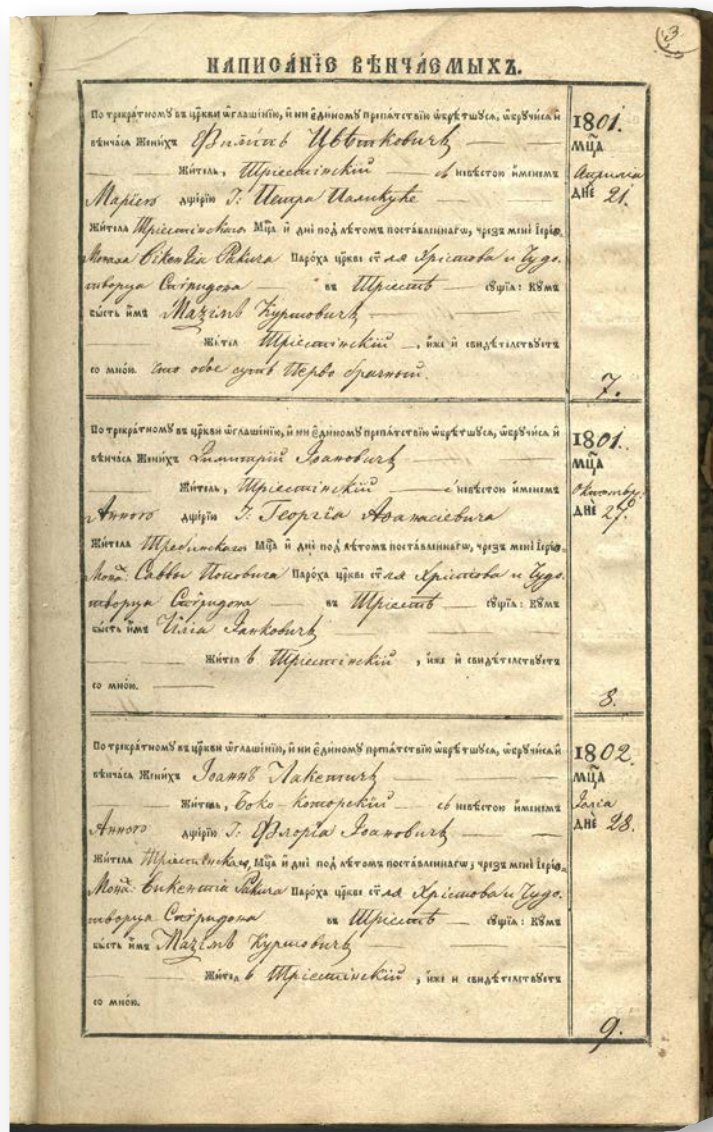 3.
НАПИСАНІЕ ВѢНЧАЕМЫХЪ.
По трикратному въ цр҃кви ѡглашенію, и ни единому препятствію ѡбрѣтшуся, ѡбручися и
вѣнчася Женихъ Филіппъ Цвѣтковичъ
Житель, Тріестинскій съ невѣстою именемъ
Маріею дщерію Г: Петра Паликуће
Жителя Тріестинскаго Мц҃а и дне под лѣтомъ поставленнагѡ, чрезъ мене Іерѡ
Монаха Вікентіа Ракича Пароха цр҃кве ст҃ля Хрістова и Чудо.
творца Спѷридона въ Тріестѣ сущія: Кумъ
бысть имъ Маѯімъ Куртовичъ
Жител Тріестинскій, иже и свидѣтелствуетъ
со мною. что обое сутъ Перво брачныи.
1801.
МЦ҃А
Априліа
ДНѐ 21.
7.
По трикратному въ цр҃кви ѡглашенію, и ни единому препятствію ѡбрѣтшуся, ѡбручися и
вѣнчася Женихъ Димитрій Іоановичъ
Житель, Тріестинскій с невѣстою именемъ
Анною дщерію Г: Георгіа Аѳанасіевича
Жителя Требинскаго Мц҃а и дне под лѣтомъ поставленнагѡ, чрезъ мене Іерѡ
Мона: Саввы Поповича Пароха цр҃кве ст҃ля Хрістова и Чудо.
творца Спѷридона въ Тріестѣ сущія: Кумъ
бысть имъ Иліа Јанковичъ
Жител ь Тріестинскій, иже и свидѣтелствуетъ
со мною.
1801.
МЦ҃А
Октомвр:
ДНѐ 27.
8.
По трикратному въ цр҃кви ѡглашенію, и ни единому препятствію ѡбрѣтшуся, ѡбручися и
вѣнчася Женихъ Іоаннъ Лакетичъ
Житель, Боко-Которскій съ невѣстою именемъ
Анною дщерію Г: Флоріа Іоановичъ
Жителя Тріестинскаго, Мц҃а и дне под лѣтомъ поставленнагѡ, чрезъ мене Іерѡ
Мона: Викентіа Ракича Пароха цр҃кве ст҃ля Хрістова и Чудо.
творца Спѷридона въ Тріестѣ сущія: Кумъ
бысть имъ Маѯімъ Куртовичъ
Жител ь Тріестинскій, иже и свидѣтелствуетъ
со мною.
1802.
МЦ҃А
Іоліа
ДНѐ 28.
9.